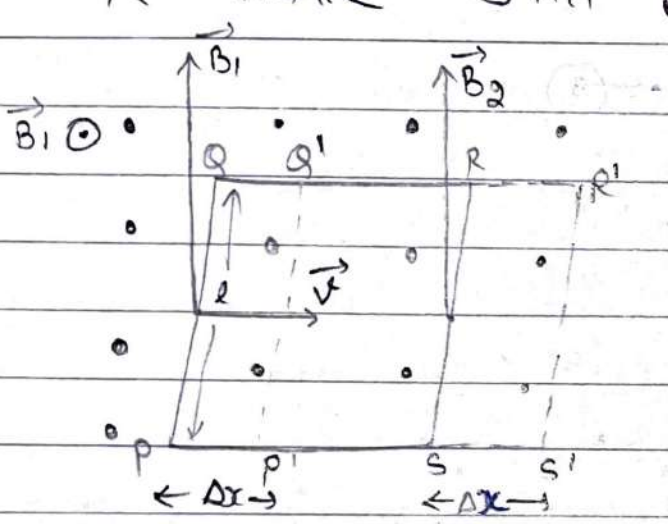 B₁
B₂
B₁
Q Q' R R'
l
v
P P' S S'
← Δx → ← Δx →